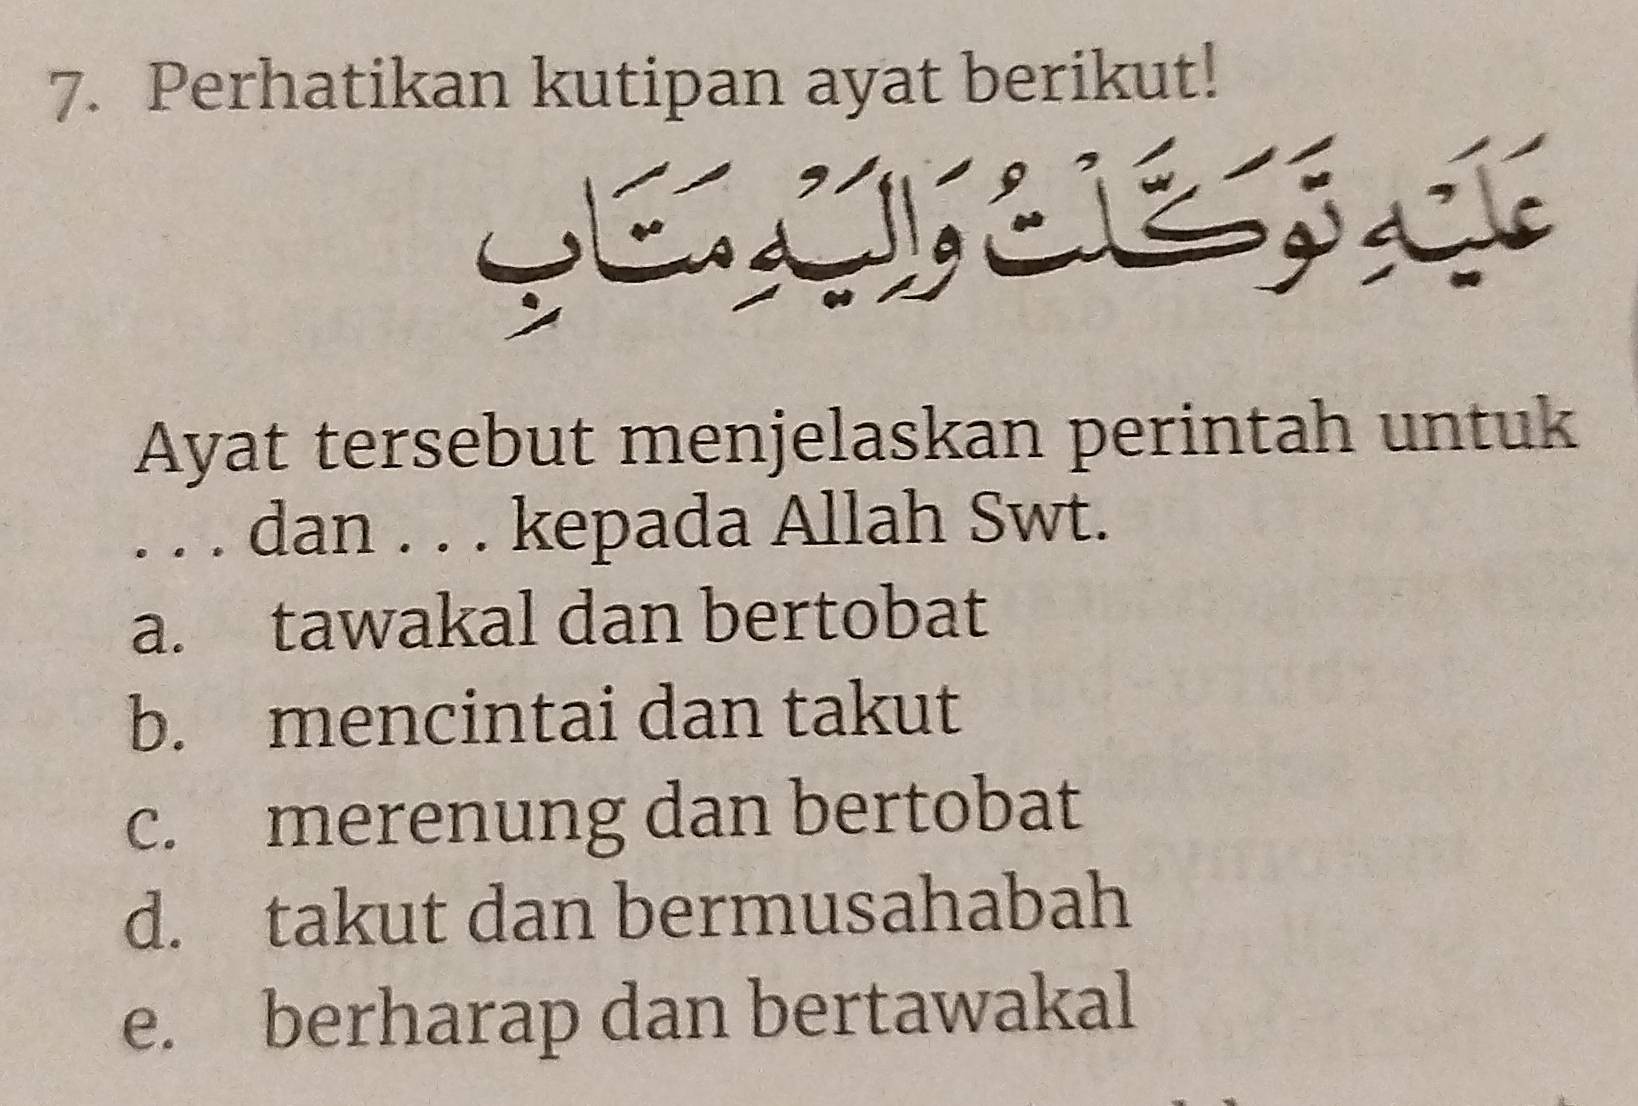 7. Perhatikan kutipan ayat berikut!
عَلَيْهِ تَوَكَّلْتُ وَاِلَيْهِ مَتَابِ
Ayat tersebut menjelaskan perintah untuk
. . . dan . . . kepada Allah Swt.
a. tawakal dan bertobat
b. mencintai dan takut
c. merenung dan bertobat
d. takut dan bermusahabah
e. berharap dan bertawakal